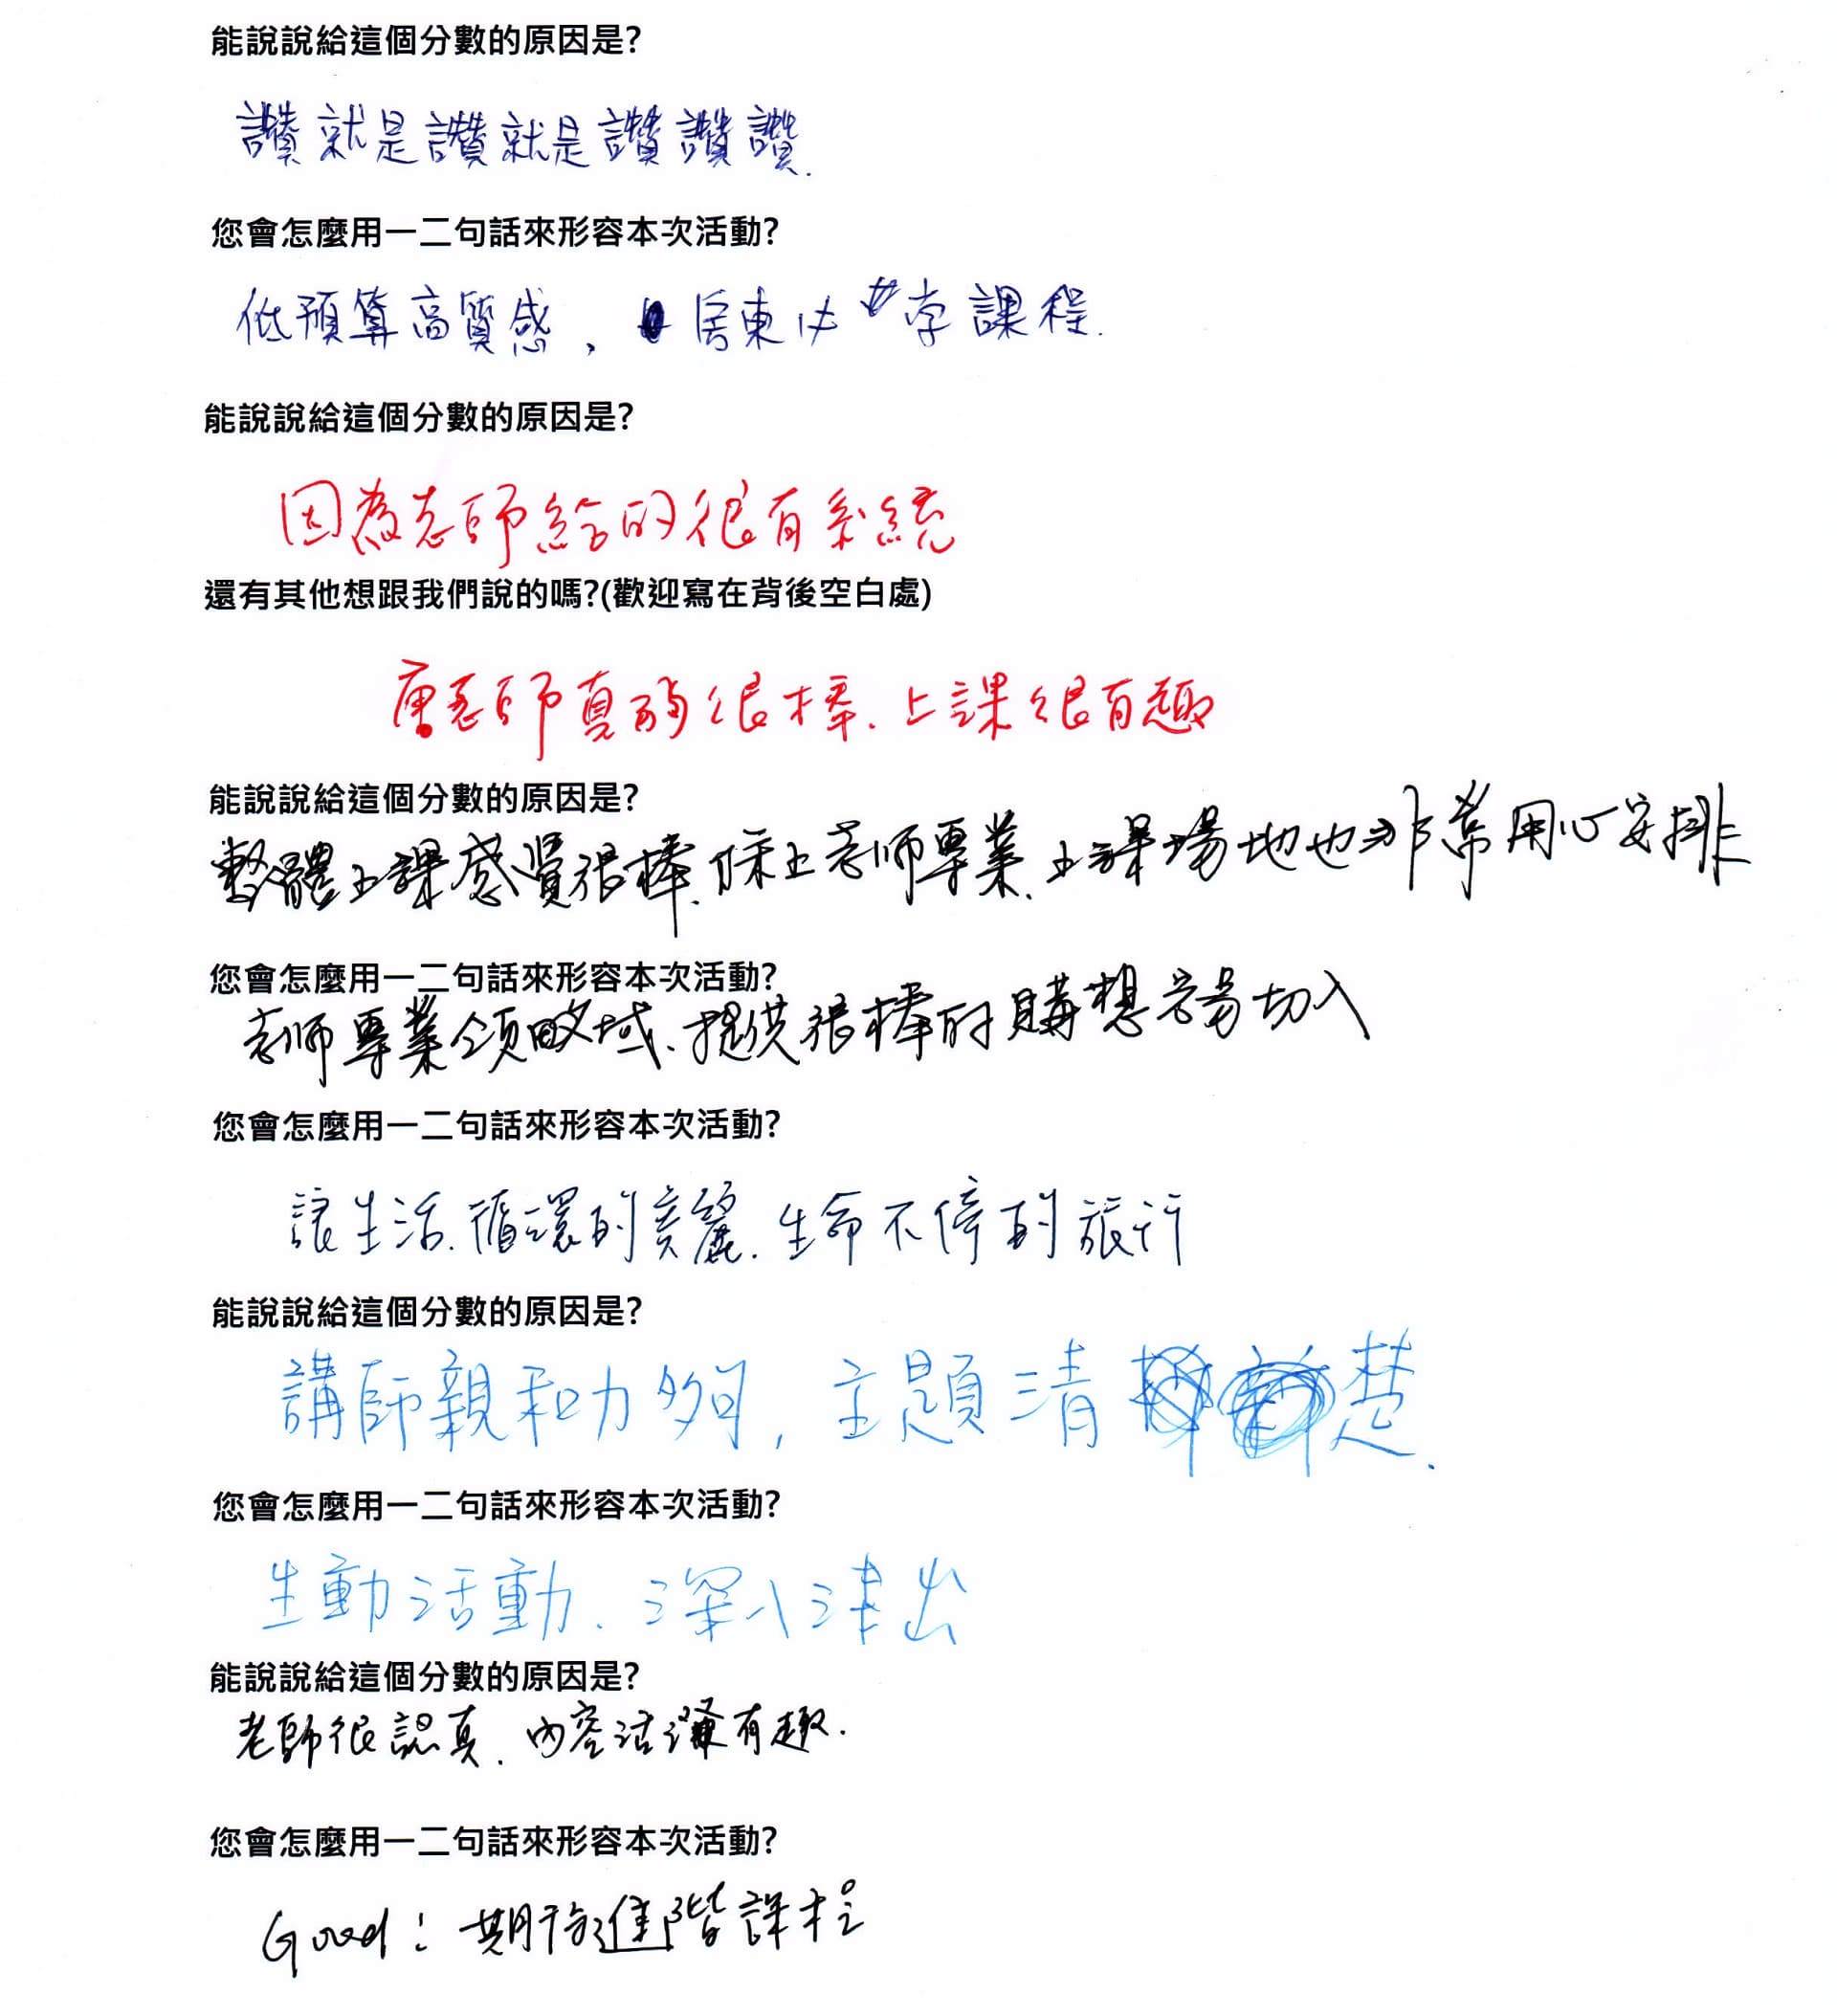 能說說給這個分數的原因是?
讚就是讚就是讚讚讚.
您會怎麼用一二句話來形容本次活動?
低預算高質感、房東必學課程.
能說說給這個分數的原因是?
因為老師給的很有系統
還有其他想跟我們說的嗎?(歡迎寫在背後空白處)
唐老師真的很棒.上課很有趣
能說說給這個分數的原因是?
整體上課感覺很棒.除上老師專業.上課場地也非常用心安排
您會怎麼用一二句話來形容本次活動?
老師專業領域.提供很棒的購想容易切入
您會怎麼用一二句話來形容本次活動?
讓生活.循環的美麗.生命不停的旅行
能說說給這個分數的原因是?
講師親和力夠,主題清楚.
您會怎麼用一二句話來形容本次活動?
生動活動.深入津出
能說說給這個分數的原因是?
老師很認真.內容活潑有趣.
您會怎麼用一二句話來形容本次活動?
Good!期待進階課程